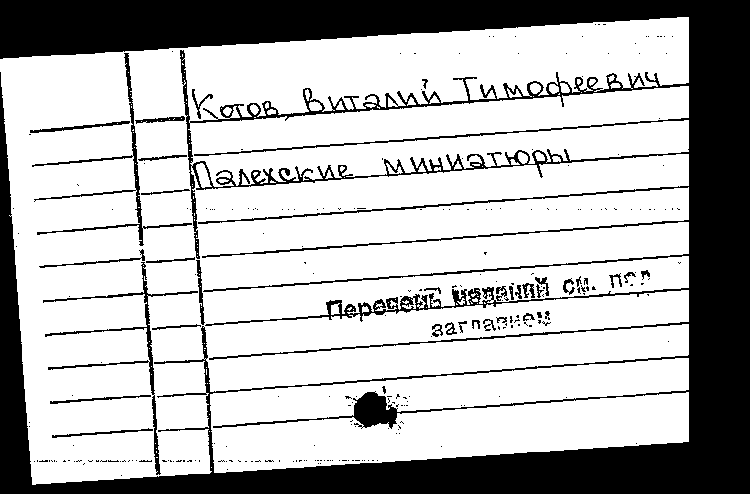 Котов, Виталий Тимофеевич
Палехские миниатюры
Перечень изданий см. под
заглавием